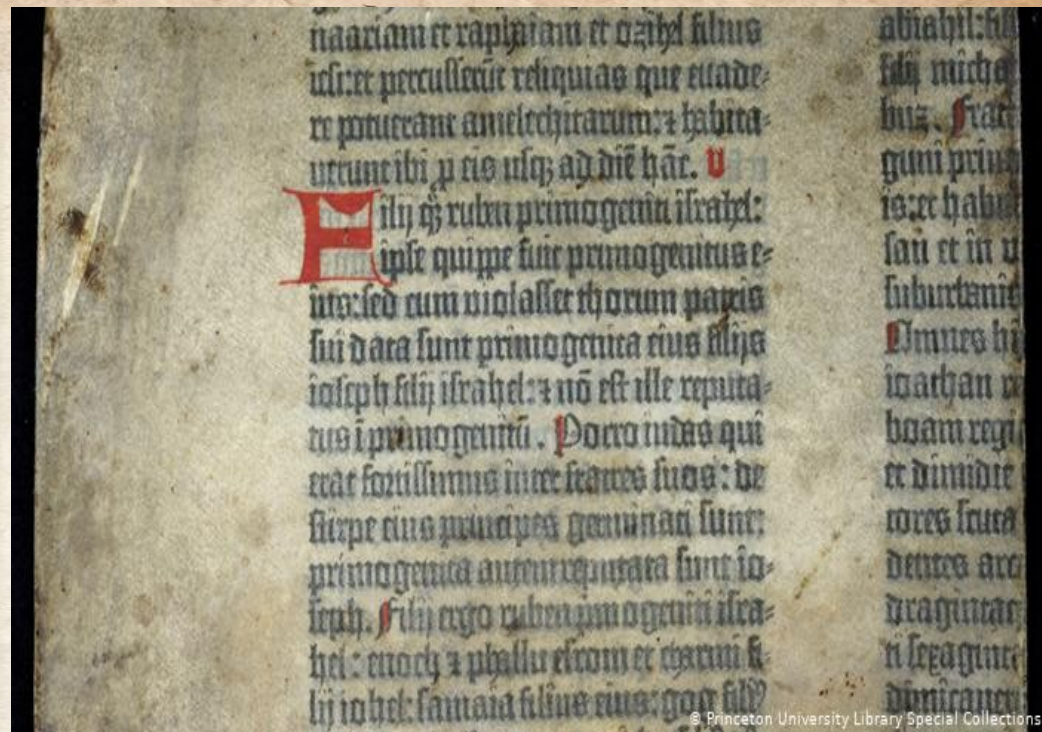 naariam et raphaiam et ozihel filius
iesi: et percusserūt reliquias que euade-
re potuerant amelechitarum: ⁊ habita-
uerunt ibi p eis usqꝫ ad diē hāc. V
Filij qꝫ ruben primogeniti israhel:
ipse quippe fuit primogenitus e-
ius: sed cum violasset thorum patris
sui data sunt primogenita eius filijs
ioseph filij israhel: ⁊ nō est ille reputa-
tus ī primogenitū. Porro iudas qui
erat fortissimus inter fratres suos: de
stirpe eius principes germinati sunt:
primogenita autem reputata sunt io-
seph. Filij ergo ruben pmogeniti isra-
hel: enoch ⁊ phallu esrom et charmi fi-
lij iohel: samaia filius eius: gog filiꝰ
abiahil: fil
filij micha
buz. Frat
guni prin
is: et habit
san et in
suburbanis
Omnes hi
ioathan re
boam regi
et dimidie
tores scuta
dentes arc
draginta
ti sexagint
dimicaueru
© Princeton University Library Special Collections